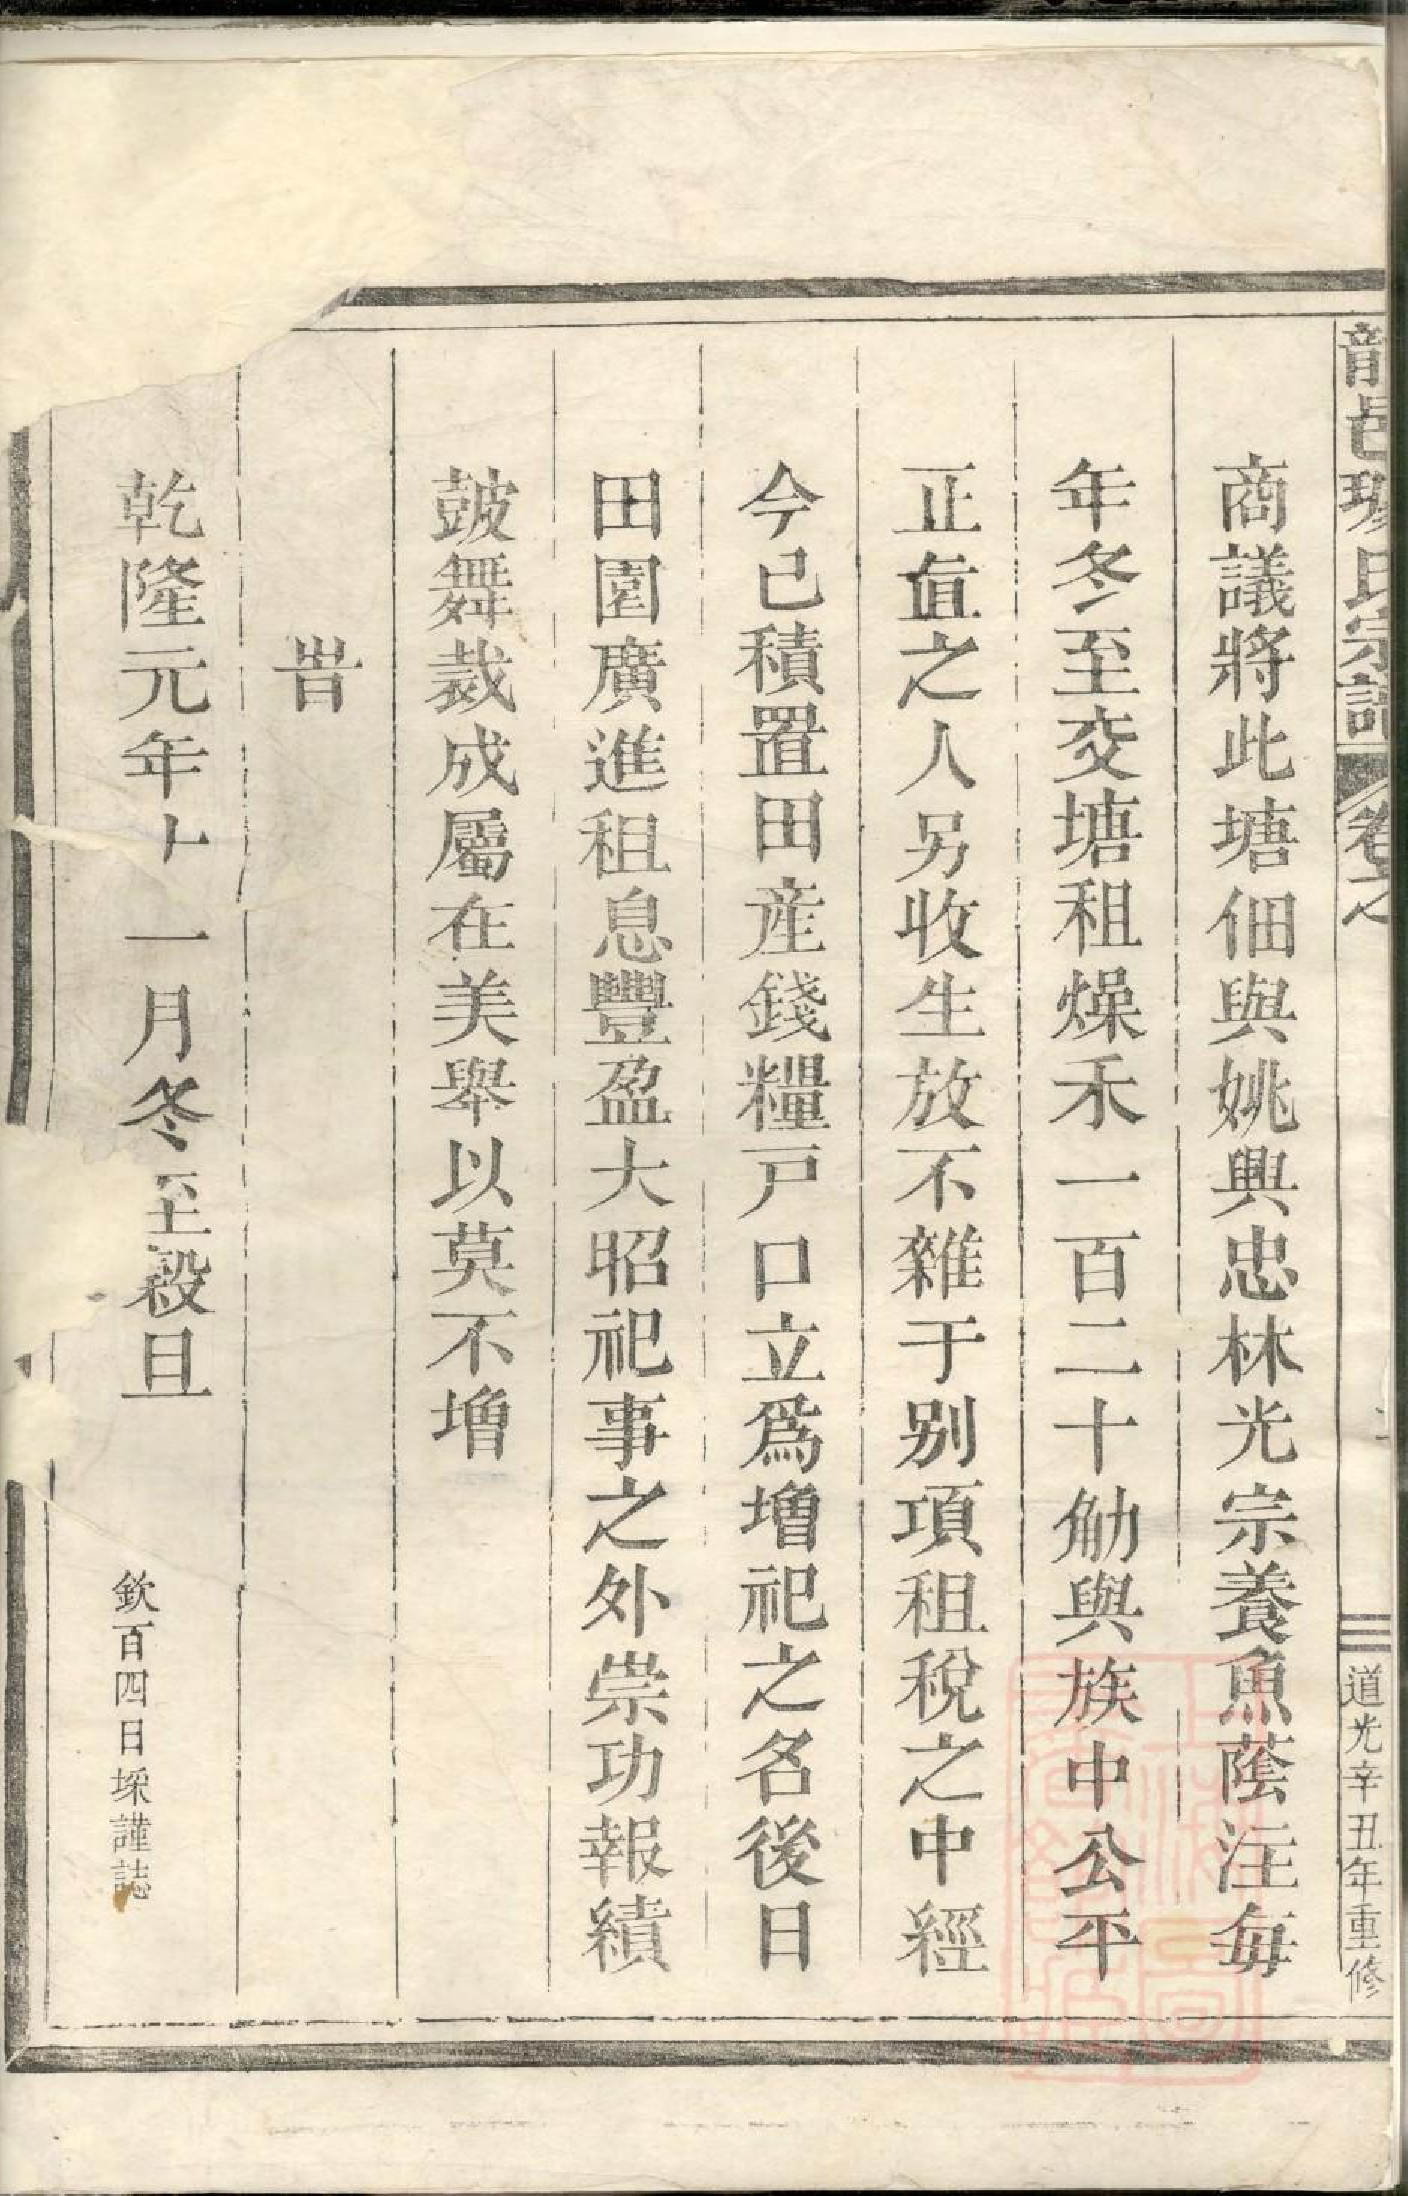 商議將此塘佃與姚興忠林光宗養魚蔭注每
年冬至交塘租燥禾一百二十觔與族中公平
正直之人另收生放不雜于别項租稅之中經
今已積置田産錢糧戸口立爲增祀之名後日
田園廣進租息豐盈大昭祀事之外崇功報績
鼓舞裁成屬在美舉以莫不增
旹
乾隆元年十一月冬至榖旦
欽百四日埰謹誌
氏宗譜 卷之
道光辛丑年重修